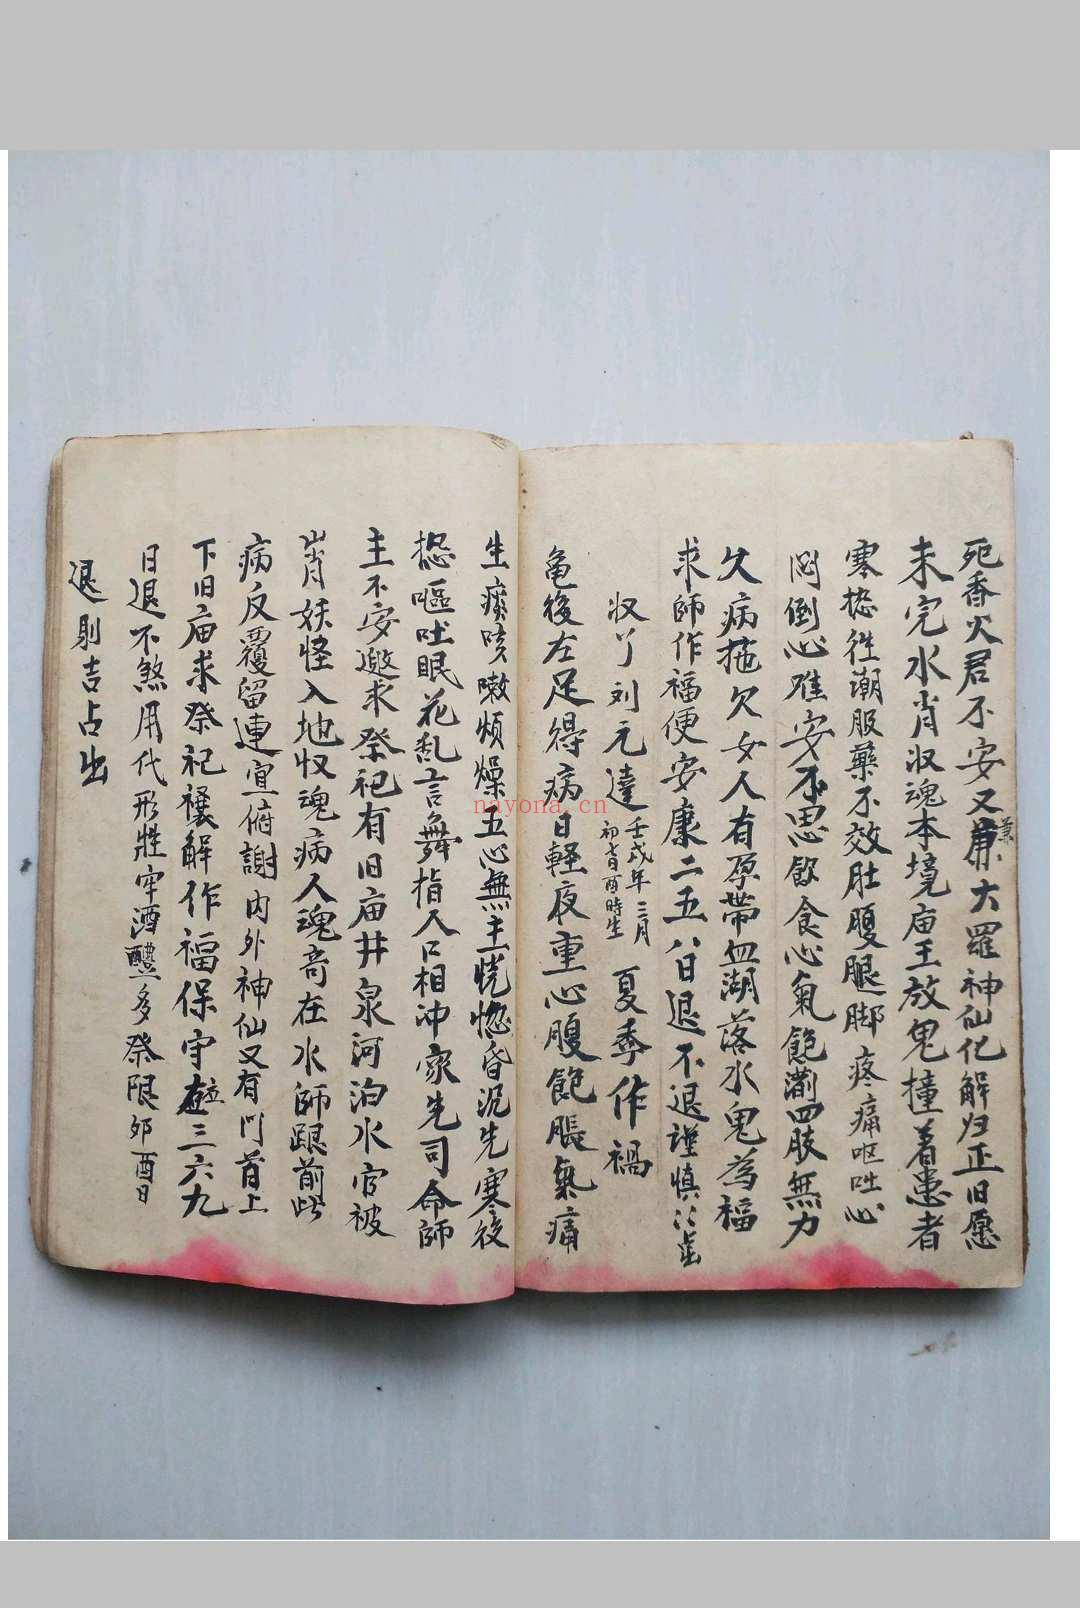 死香火君不安又兼大羅神仙化解归正旧愿
未完水肖収魂本境庙王放鬼撞着患者
寒热往潮服藥不效肚腹腿脚疼痛呕吐心
闷倒心难安不思飲食心氣飽滿四肢無力
久病拖欠女人有孕帶血湖落水鬼為福
求師作福便安康二五八日退不退謹慎
収丫刘元達 壬戌年三月 初 酉時生 夏季作禍
亀後左足得病日軽夜重心腹飽脹氣痛
生痰咳嗽煩燥五心無主恍惚昏沉先寒後
热嘔吐眠花乱言舞指人口相冲家先司命師
主不安邀求祭祀有旧庙井泉河泊水官被
肖妖怪入地収魂病人魂竒在水師跟前此
病反覆留連宜俯謝内外神仙又有门首上
下旧庙求祭祀禳解作福保守三六九
日退不煞用代形牲牢酒醴多祭限卯酉日
退則吉占出
nayona.cn